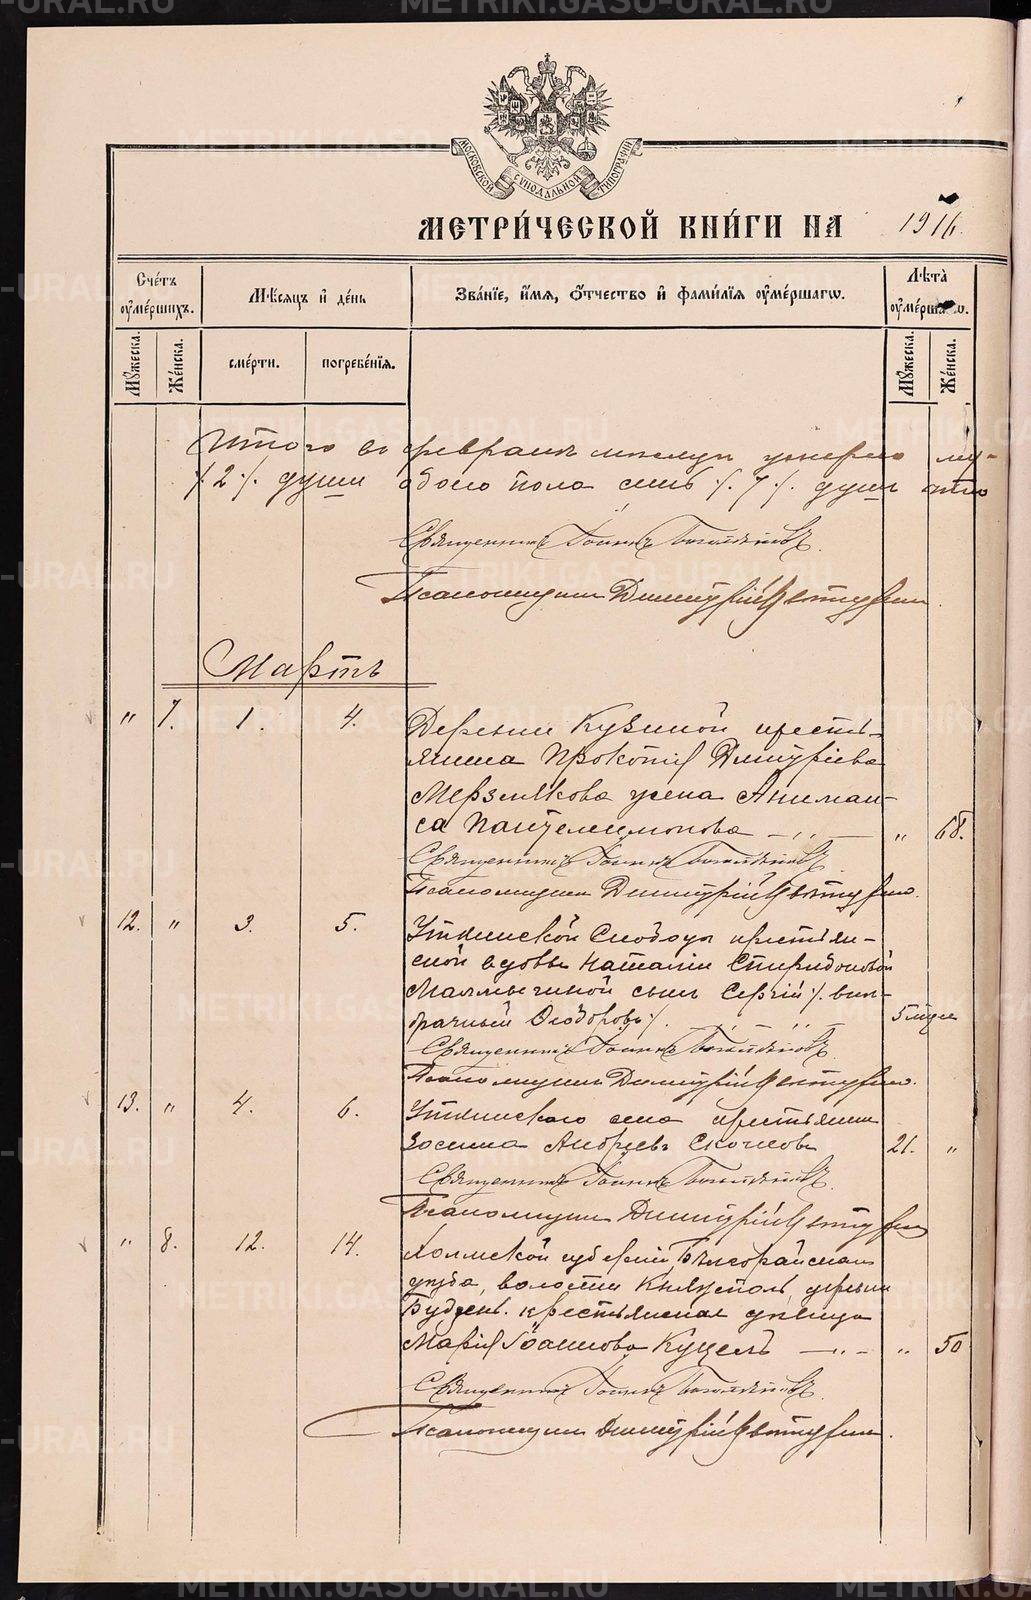 МОСКОВСКОЙ СѴНОДАЛЬНОЙ ТИПОГРАФІИ
МЕТРИ́ЧЕСКОЙ КНИ́ГИ НА 1916
Сче́тъ ᲂумершихъ.
Мѣ́сяцъ и де́нь
Зва́нїе, и́мя, ѻ́тчество и фами́лїя ᲂуме́ршагѡ.
Лѣ́та ᲂуме́ршагѡ.
Мꙋ́жеска.
Же́нска.
сме́рти.
погребе́нїя.
Мꙋ́жеска.
Же́нска.
Итого въ февралѣ мѣсяцѣ умерло му-
./.2./. души обоего пола семь ./.7./. душъ
Священникъ Іоаннъ
Псаломщикъ Димитрій
Мартъ
" 7. 1. 4. Деревни Кузиной кресть-
янина Прокопія Димитріева
Мерзлякова жена Анимаи-
са Пантелеимонова — " — " 68.
Священникъ Іоаннъ
Псаломщикъ Димитрій
12. " 3. 5. Уткинской Слободы крестьян-
ской вдовы Наталіи Спиридоновой
сынъ Сергій ./. вне-
брачный Ѳеодоровъ ./. 5 мѣся
Священникъ Іоаннъ
Псаломщикъ Димитрій
13. " 4. 6. Уткинскаго села крестьянинъ
Зосима Андреевъ 21. "
Священникъ Іоаннъ
Псаломщикъ Димитрій
" 8. 12. 14. Холмской губерніи Бѣлгорайскаго
уѣзда, волости Княжполь, деревни
крестьянская дѣвица
Марія Іоаннова Куцелъ — " — " 50
Священникъ Іоаннъ
Псаломщикъ Димитрій
METRIKI.GASO-URAL.RU